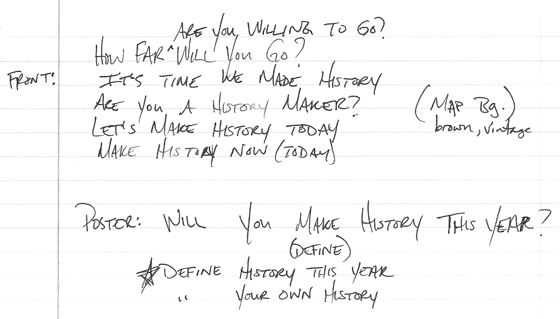 ARE YOU WILLING TO GO?
HOW FAR ^ WILL YOU GO?
FRONT: IT'S TIME WE MADE HISTORY
ARE YOU A HISTORY MAKER?
LET'S MAKE HISTORY TODAY
MAKE HISTORY NOW (TODAY)
(MAP BG.)
brown, vintage
POSTER: WILL YOU MAKE HISTORY THIS YEAR?
(DEFINE)
DEFINE HISTORY THIS YEAR
" YOUR OWN HISTORY